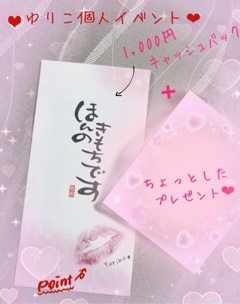 ❤ゆりこ個人イベント❤
1,000円
キャッシュバック
+
ほんの
きもちです
ちょっとした
プレゼント❤
Yuriko
Point